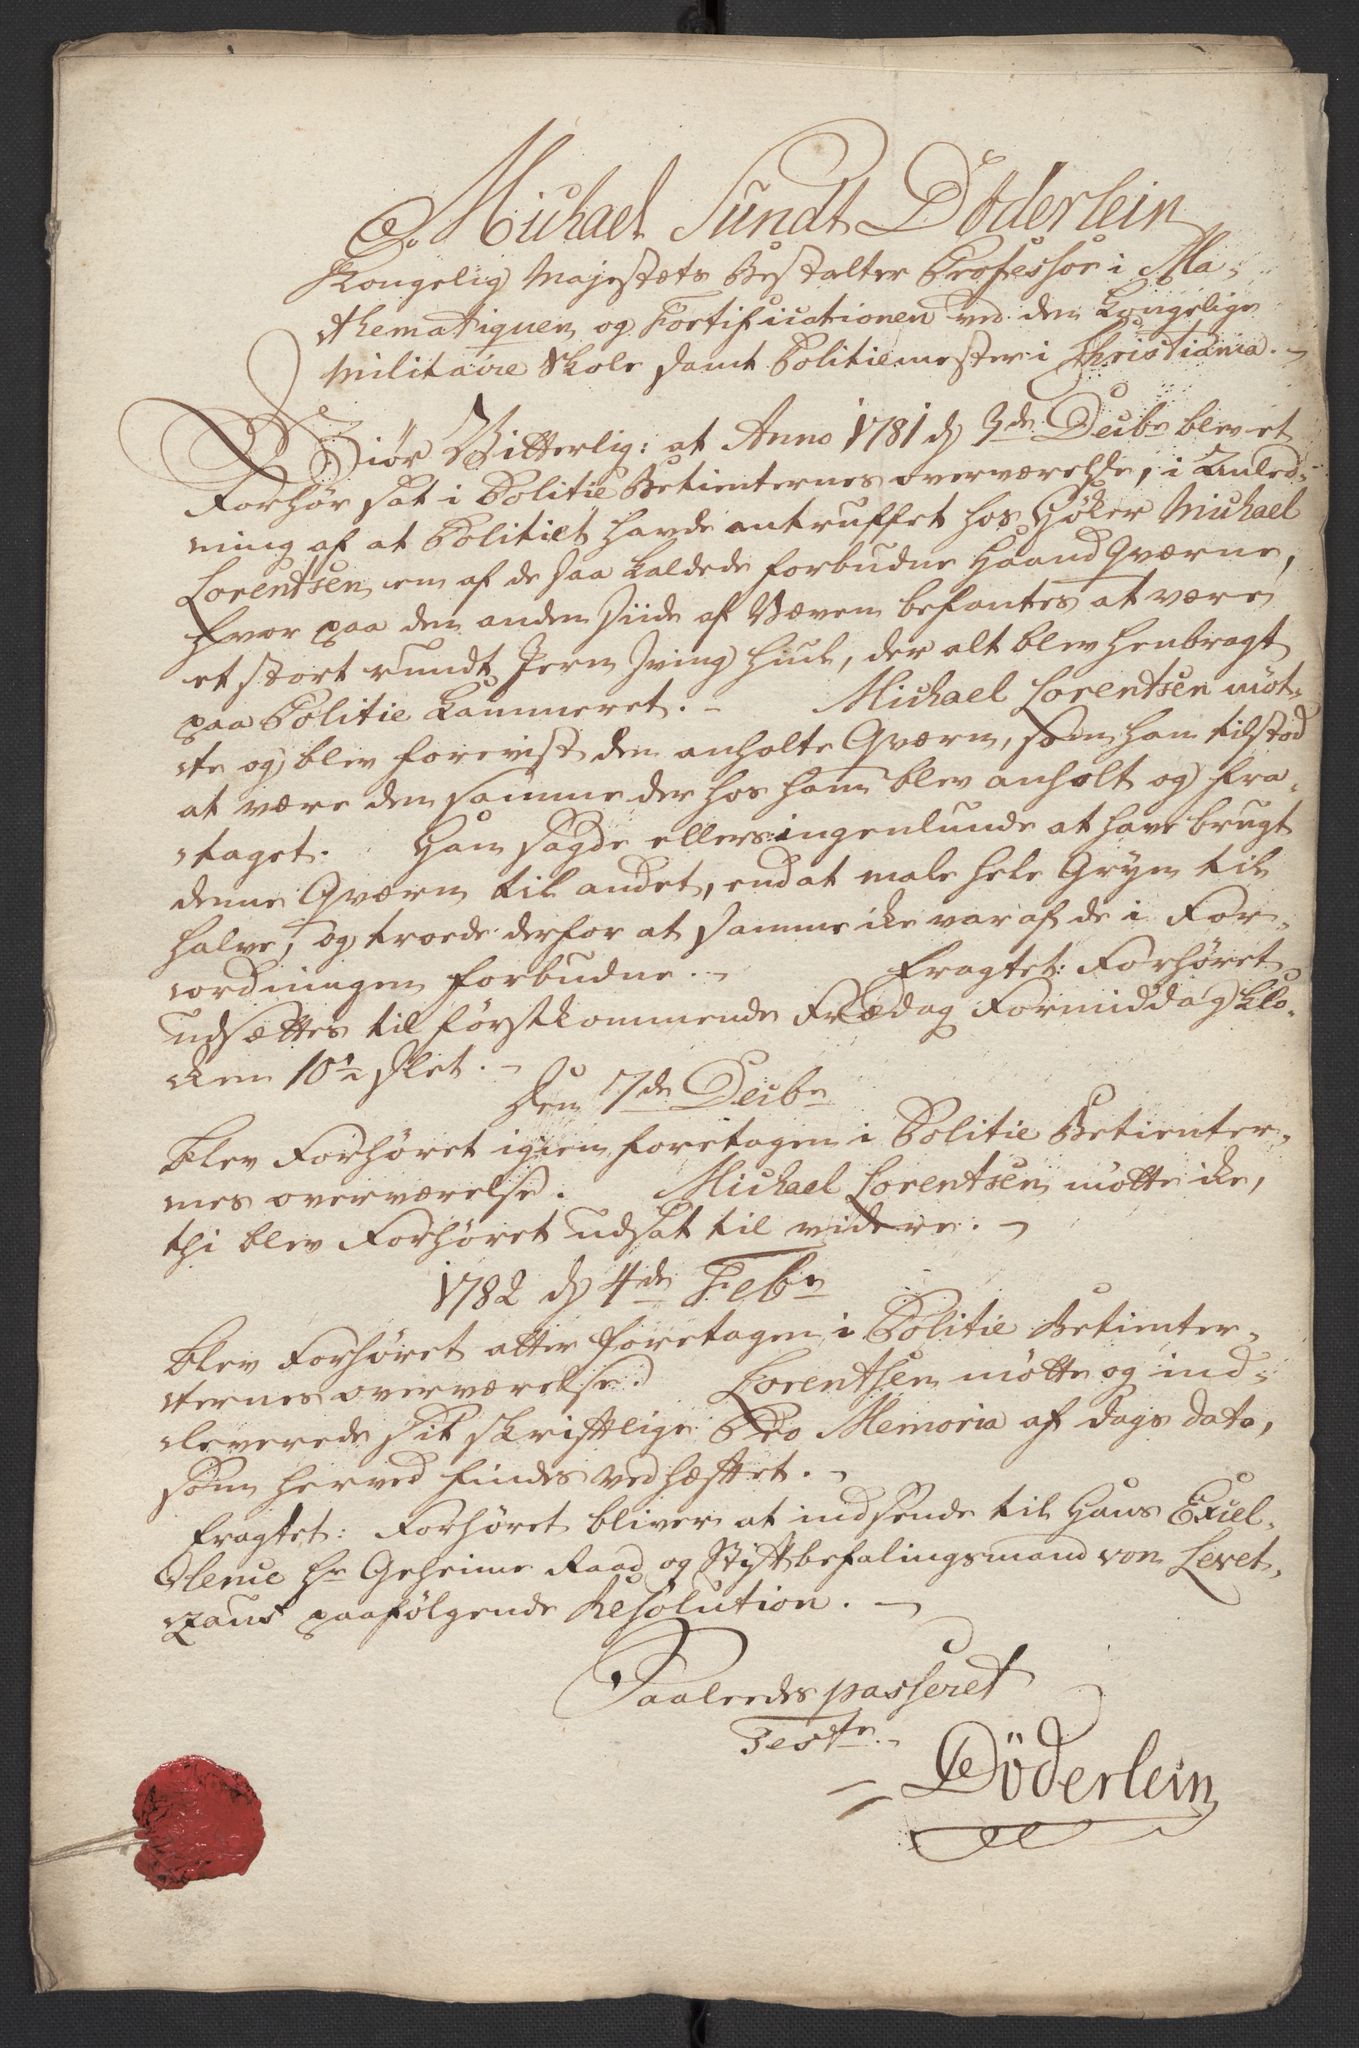 Michael Sundt Döderlein
Kongelig Majestæts Bestalter Professor i Ma-
thematiquen og Fortificationen ved den Kongelige
Militaire Skole samt Politiemester i Christiania.
Giör Vitterlig: at Anno 1781 d 3de Decbr blev et
Forhör sat i Politie Betienternes overværelse, i Anled-
ning af at Politiet havde antruffet hos Höker Michael
Lorentsen een af de saa kaldede forbudne Haand Qværne,
hvor paa den anden siide af Væven befantes at være
et stort rundt Jern Sving Huul, der alt blev henbragt
paa Politie Kammeret. - Michael Lorentsen möt-
te og blev foreviist den anholte Qværn, som han tilstod
at være den samme der hos ham blev anholt og fra-
taget. Han sagde ellers ingenlunde at have brugt
denne Qværn til andet, end at male hele Gryn til
halve, og troede derfor at samme ike var af de i For-
ordningen forbudne. - Fragtet: Forhöret
udsættes til förstkommende Fredag Formiddag Klo-
ken 10 slet. -
Den 7de Decbr
blev Forhöret igien foretagen i Politie Betienter-
nes overværelse. Michael Lorentsen mötte ike,
thi blev Forhöret udsat til videre. -
1782 d 4de Febr
blev Forhöret atter foretagen i Politie Betienter-
ternes overværelse. Lorentsen mötte og ind-
leverede sit skriftlige Pro Memoria af dags dato,
som herved findes vedhæftet. -
Fragtet: Forhöret bliver at indsende til Hans Excel-
lence Hr Geheime Raad og Stiftbefalingsmand von Levet-
zaus paafölgende Resolution. -
Saaleedes passeret
Test.
Döderlein